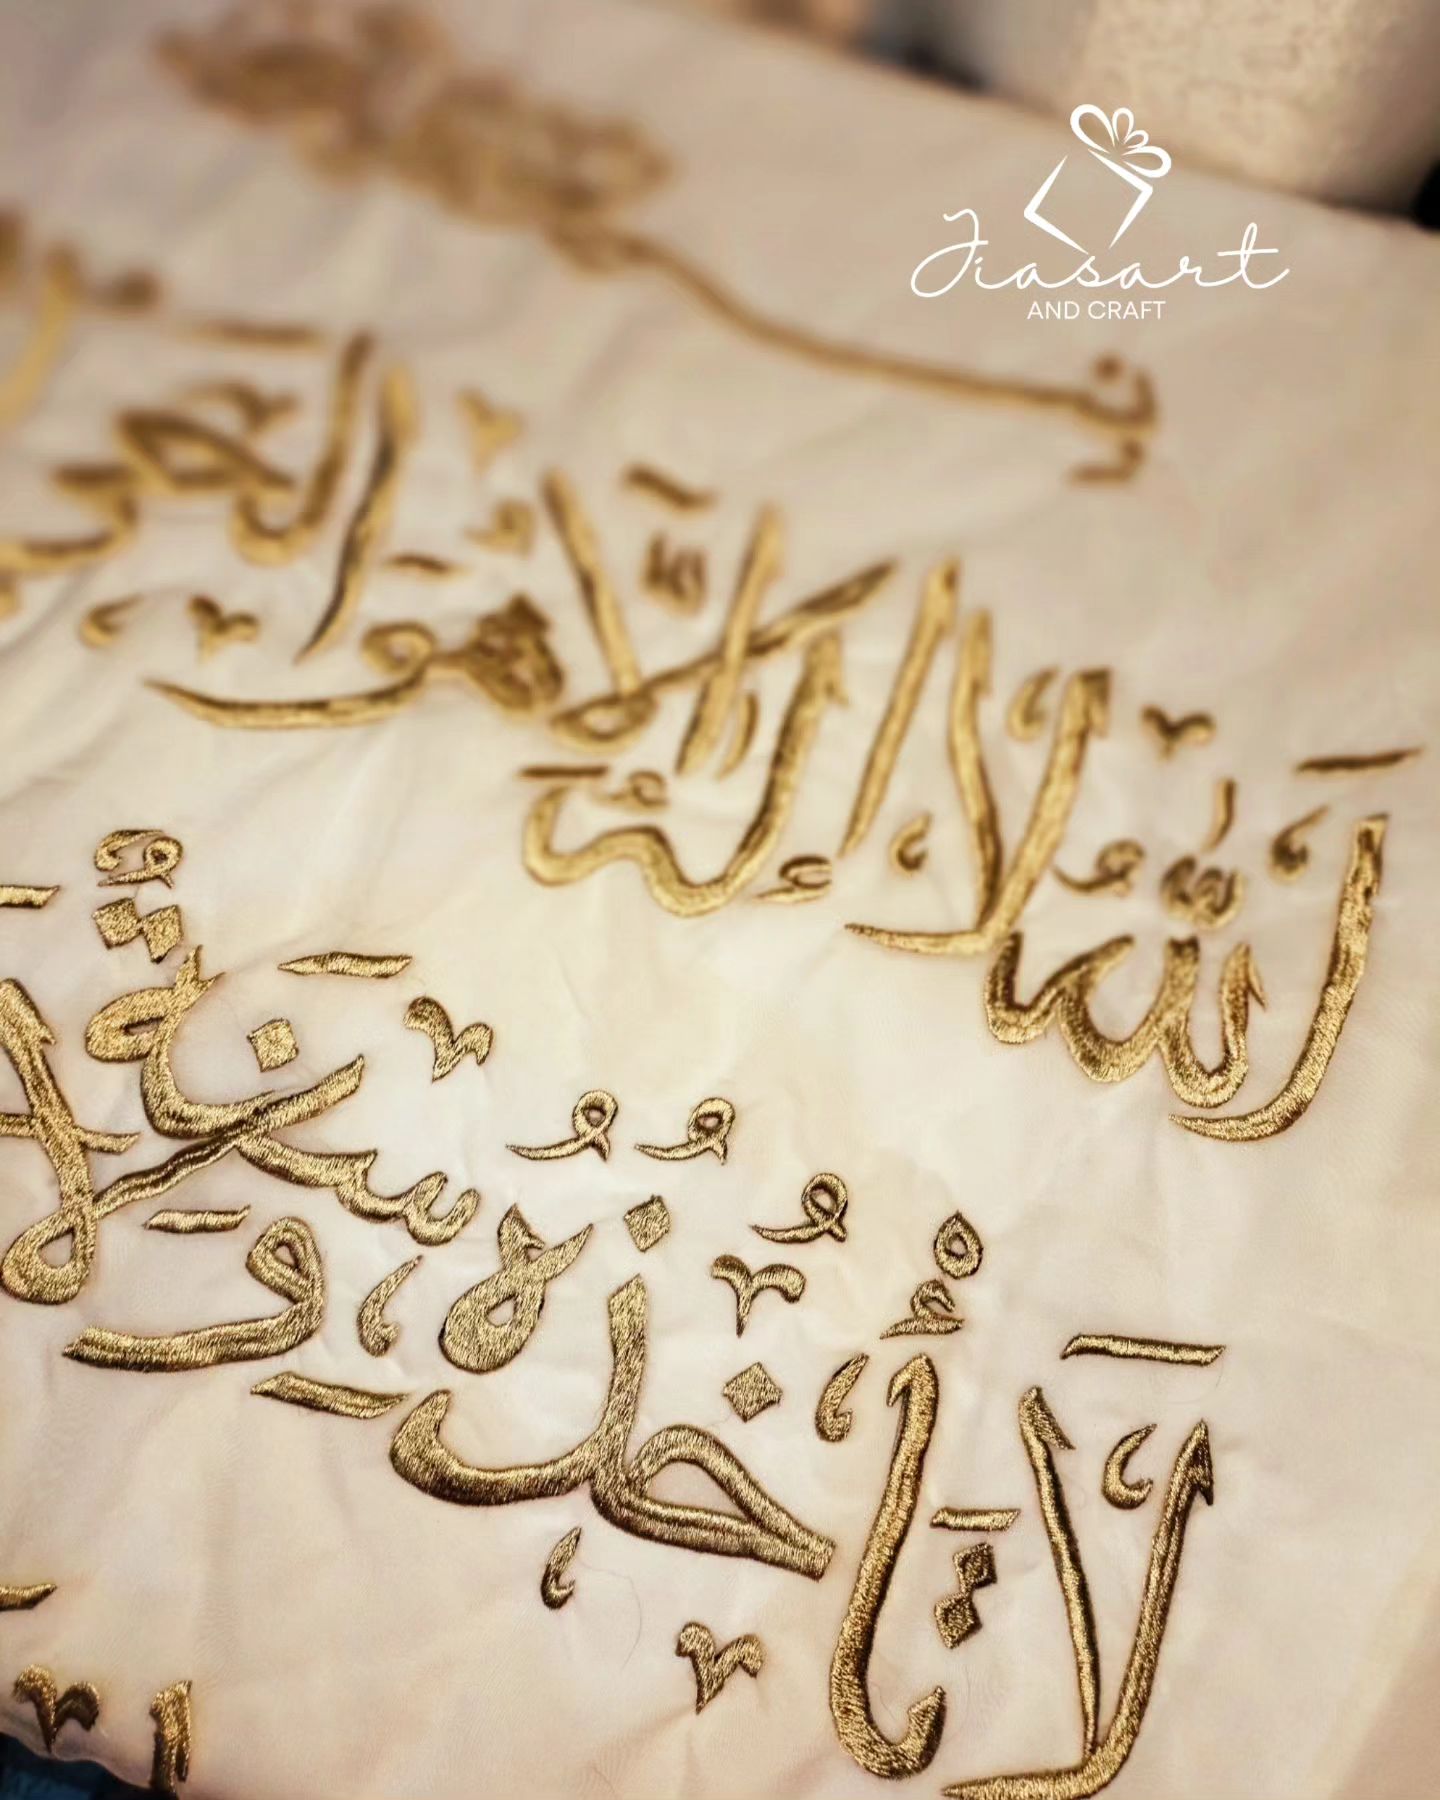 Jiasart
AND CRAFT
اَللّٰهُ لَا إِلٰهَ إِلَّا هُوَ الْحَيُّ
لَا تَأْخُذُهُ سِنَةٌ وَلَا